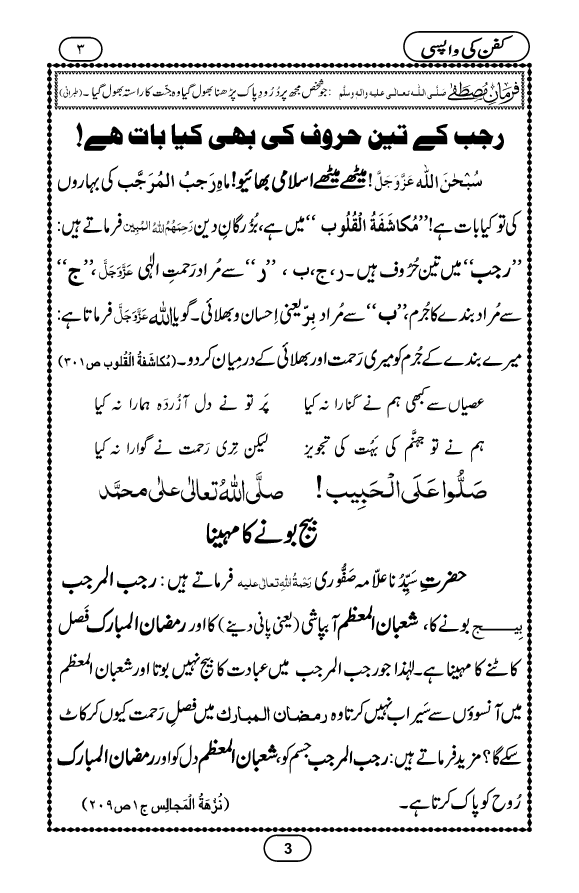 کفن کی واپسی
۳
فرمانِ مصطفٰے صلَّی اللہ تعالٰی علیہ واٰلہٖ وسلَّم : جو شخص مجھ پر دُرُودِ پاک پڑھنا بھول گیا وہ جنّت کا راستہ بھول گیا ۔ (طبرانی)
رجب کے تین حروف کی بھی کیا بات ھے!
سُبْحٰنَ اللہ عَزَّوَجَلَّ! میٹھے میٹھے اسلامی بھائیو! ماہِ رَجبُ المُرَجَّب کی بہاروں
کی تو کیا بات ہے! ’’مُکاشَفَۃُ الْقُلُوب ‘‘ میں ہے، بُزُرگانِ دین رَحِمَہُمُ اللہُ المُبِین فرماتے ہیں:
’’رجب‘‘ میں تین حُرُوف ہیں ۔ ر ، ج ، ب ، ’’ر‘‘ سے مُراد رَحمتِ الٰہی عَزَّوَجَلَّ ، ’’ج‘‘
سے مُراد بندے کا جُرم ، ’’ب‘‘ سے مُراد بِرّ یعنی اِحسان و بھلائی ۔ گویا اللہ عَزَّوَجَلَّ فرماتا ہے:
میرے بندے کے جُرم کو میری رَحمت اور بھلائی کے درمیان کردو ۔ (مُکاشَفَۃُ الْقُلوب ص ۳۰۱)
عصیاں سے کبھی ہم نے کَنارا نہ کیا پَر تو نے دل آزُردَہ ہمارا نہ کیا
ہم نے تو جہنَّم کی بَہُت کی تجویز لیکن تِری رَحمت نے گوارا نہ کیا
صَلُّوا عَلَی الْحَبِیب! صلَّی اللہُ تعالٰی علٰی محمَّد
بیج بونے کا مہینا
حضرتِ سَیِّدُنا علّامہ صَفُّوری رَحْمَۃُ اللہِ تعالٰی علیہ فرماتے ہیں : رجب المرجب
بِیـــج بونے کا، شعبان المعظم آبپاشی (یعنی پانی دینے) کا اور رمضان المبارک فَصل
کاٹنے کا مہینا ہے ۔ لہٰذا جو رجب المرجب میں عبادت کا بیج نہیں بوتا اور شعبان المعظم
میں آنسوؤں سے سَیراب نہیں کرتا وہ رمضان المبارک میں فصلِ رَحمت کیوں کر کاٹ
سکے گا؟ مزید فرماتے ہیں: رجب المرجب جسم کو، شعبان المعظم دل کو اور رمضان المبارک
رُوح کو پاک کرتا ہے ۔ (نُزْھَۃُ الْمَجالِس ج ۱ ص ۲۰۹)
3